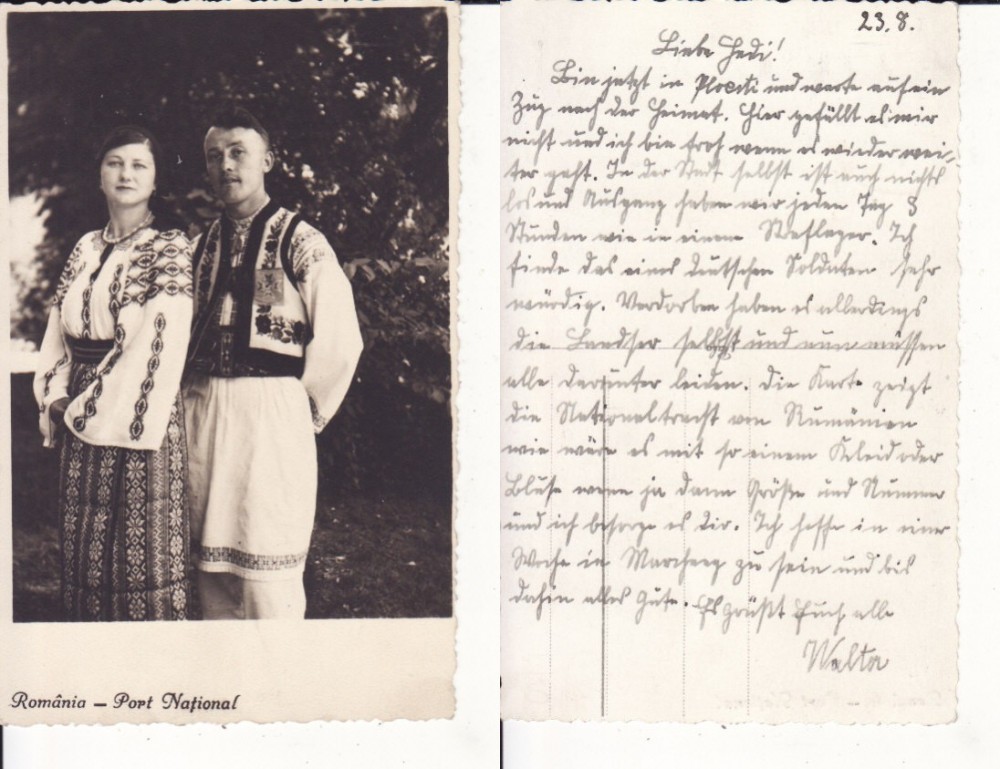 România – Port Național
23. 8.
Liebe Hedi!
Bin jetzt in Ploesti und warte auf ein
Zug nach der Heimat. Hier gefällt es mir
nicht und ich bin froh wenn es wieder wei-
ter geht. In der Stadt selbst ist auch nichts
los und Ausgang haben wir jeden Tag 3
Stunden wie in einem Straflager. Ich
finde das eines deutschen Soldaten sehr
würdig. Verdorben haben es allerdings
die Landser selbst und nun müssen
alle darunter leiden. Die Karte zeigt
die Nationaltracht von Rumänien
wie wäre es mit so einem Kleid oder
Bluse wenn ja dann Größe und Nummer
und ich besorge es dir. Ich hoffe in einer
Woche in Marchegg zu sein und bis
dahin alles Gute. Es grüßt Euch alle